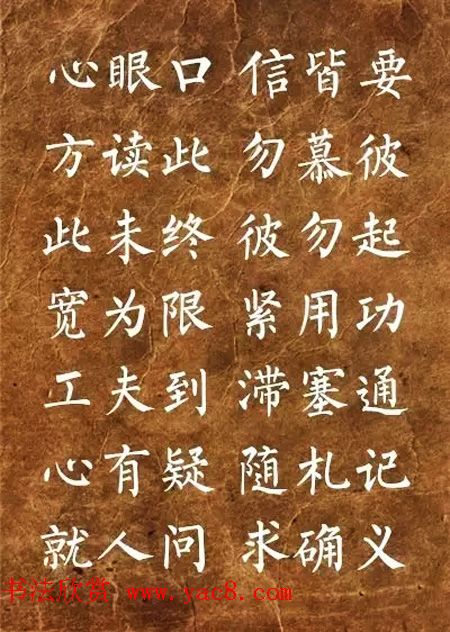 心眼口 信皆要
方读此 勿慕彼
此未终 彼勿起
宽为限 紧用功
工夫到 滞塞通
心有疑 随札记
就人问 求确义
书法欣赏 www.yac8.com